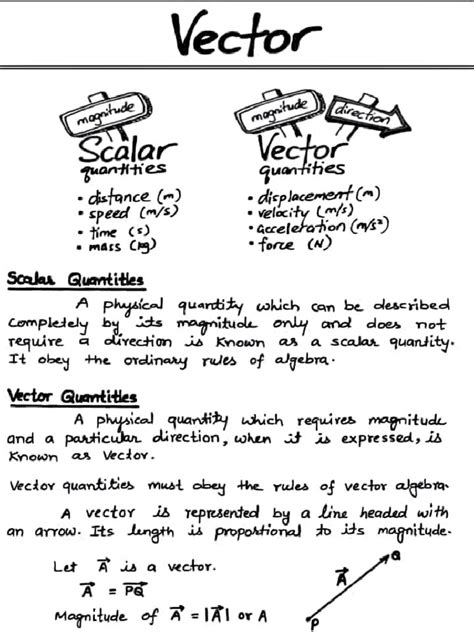 Vector
magnitude
Scalar
quantities
• distance (m)
• speed (m/s)
• time (s)
• mass (kg)
magnitude
direction
Vector
quantities
• displacement (m)
• velocity (m/s)
• acceleration (m/s²)
• force (N)
Scalar Quantities
A physical quantity which can be described
completely by its magnitude only and does not
require a direction is known as a scalar quantity.
It obey the ordinary rules of algebra.
Vector Quantities
A physical quantity which requires magnitude
and a particular direction, when it is expressed, is
known as Vector.
Vector quantities must obey the rules of vector algebra.
A vector is represented by a line headed with
an arrow. Its length is propotional to its magnitude.
Let A⃗ is a vector.
A⃗ = P⃗Q⃗
Magnitude of A⃗ = |A⃗| or A
Q
A⃗
P